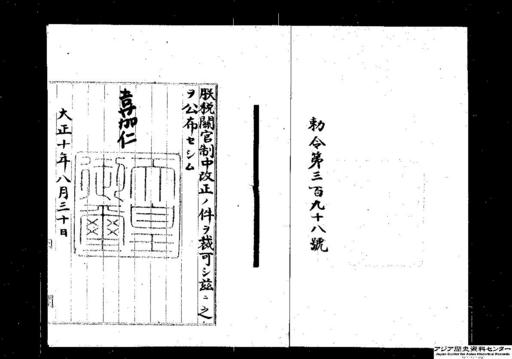 勅令第三百九十八號
朕税關官制中改正ノ件ヲ裁可シ茲ニ之
ヲ公布セシム
嘉仁
天皇御璽
大正十年八月三十日
アジア歴史資料センター
Japan Center for Asian Historical Records